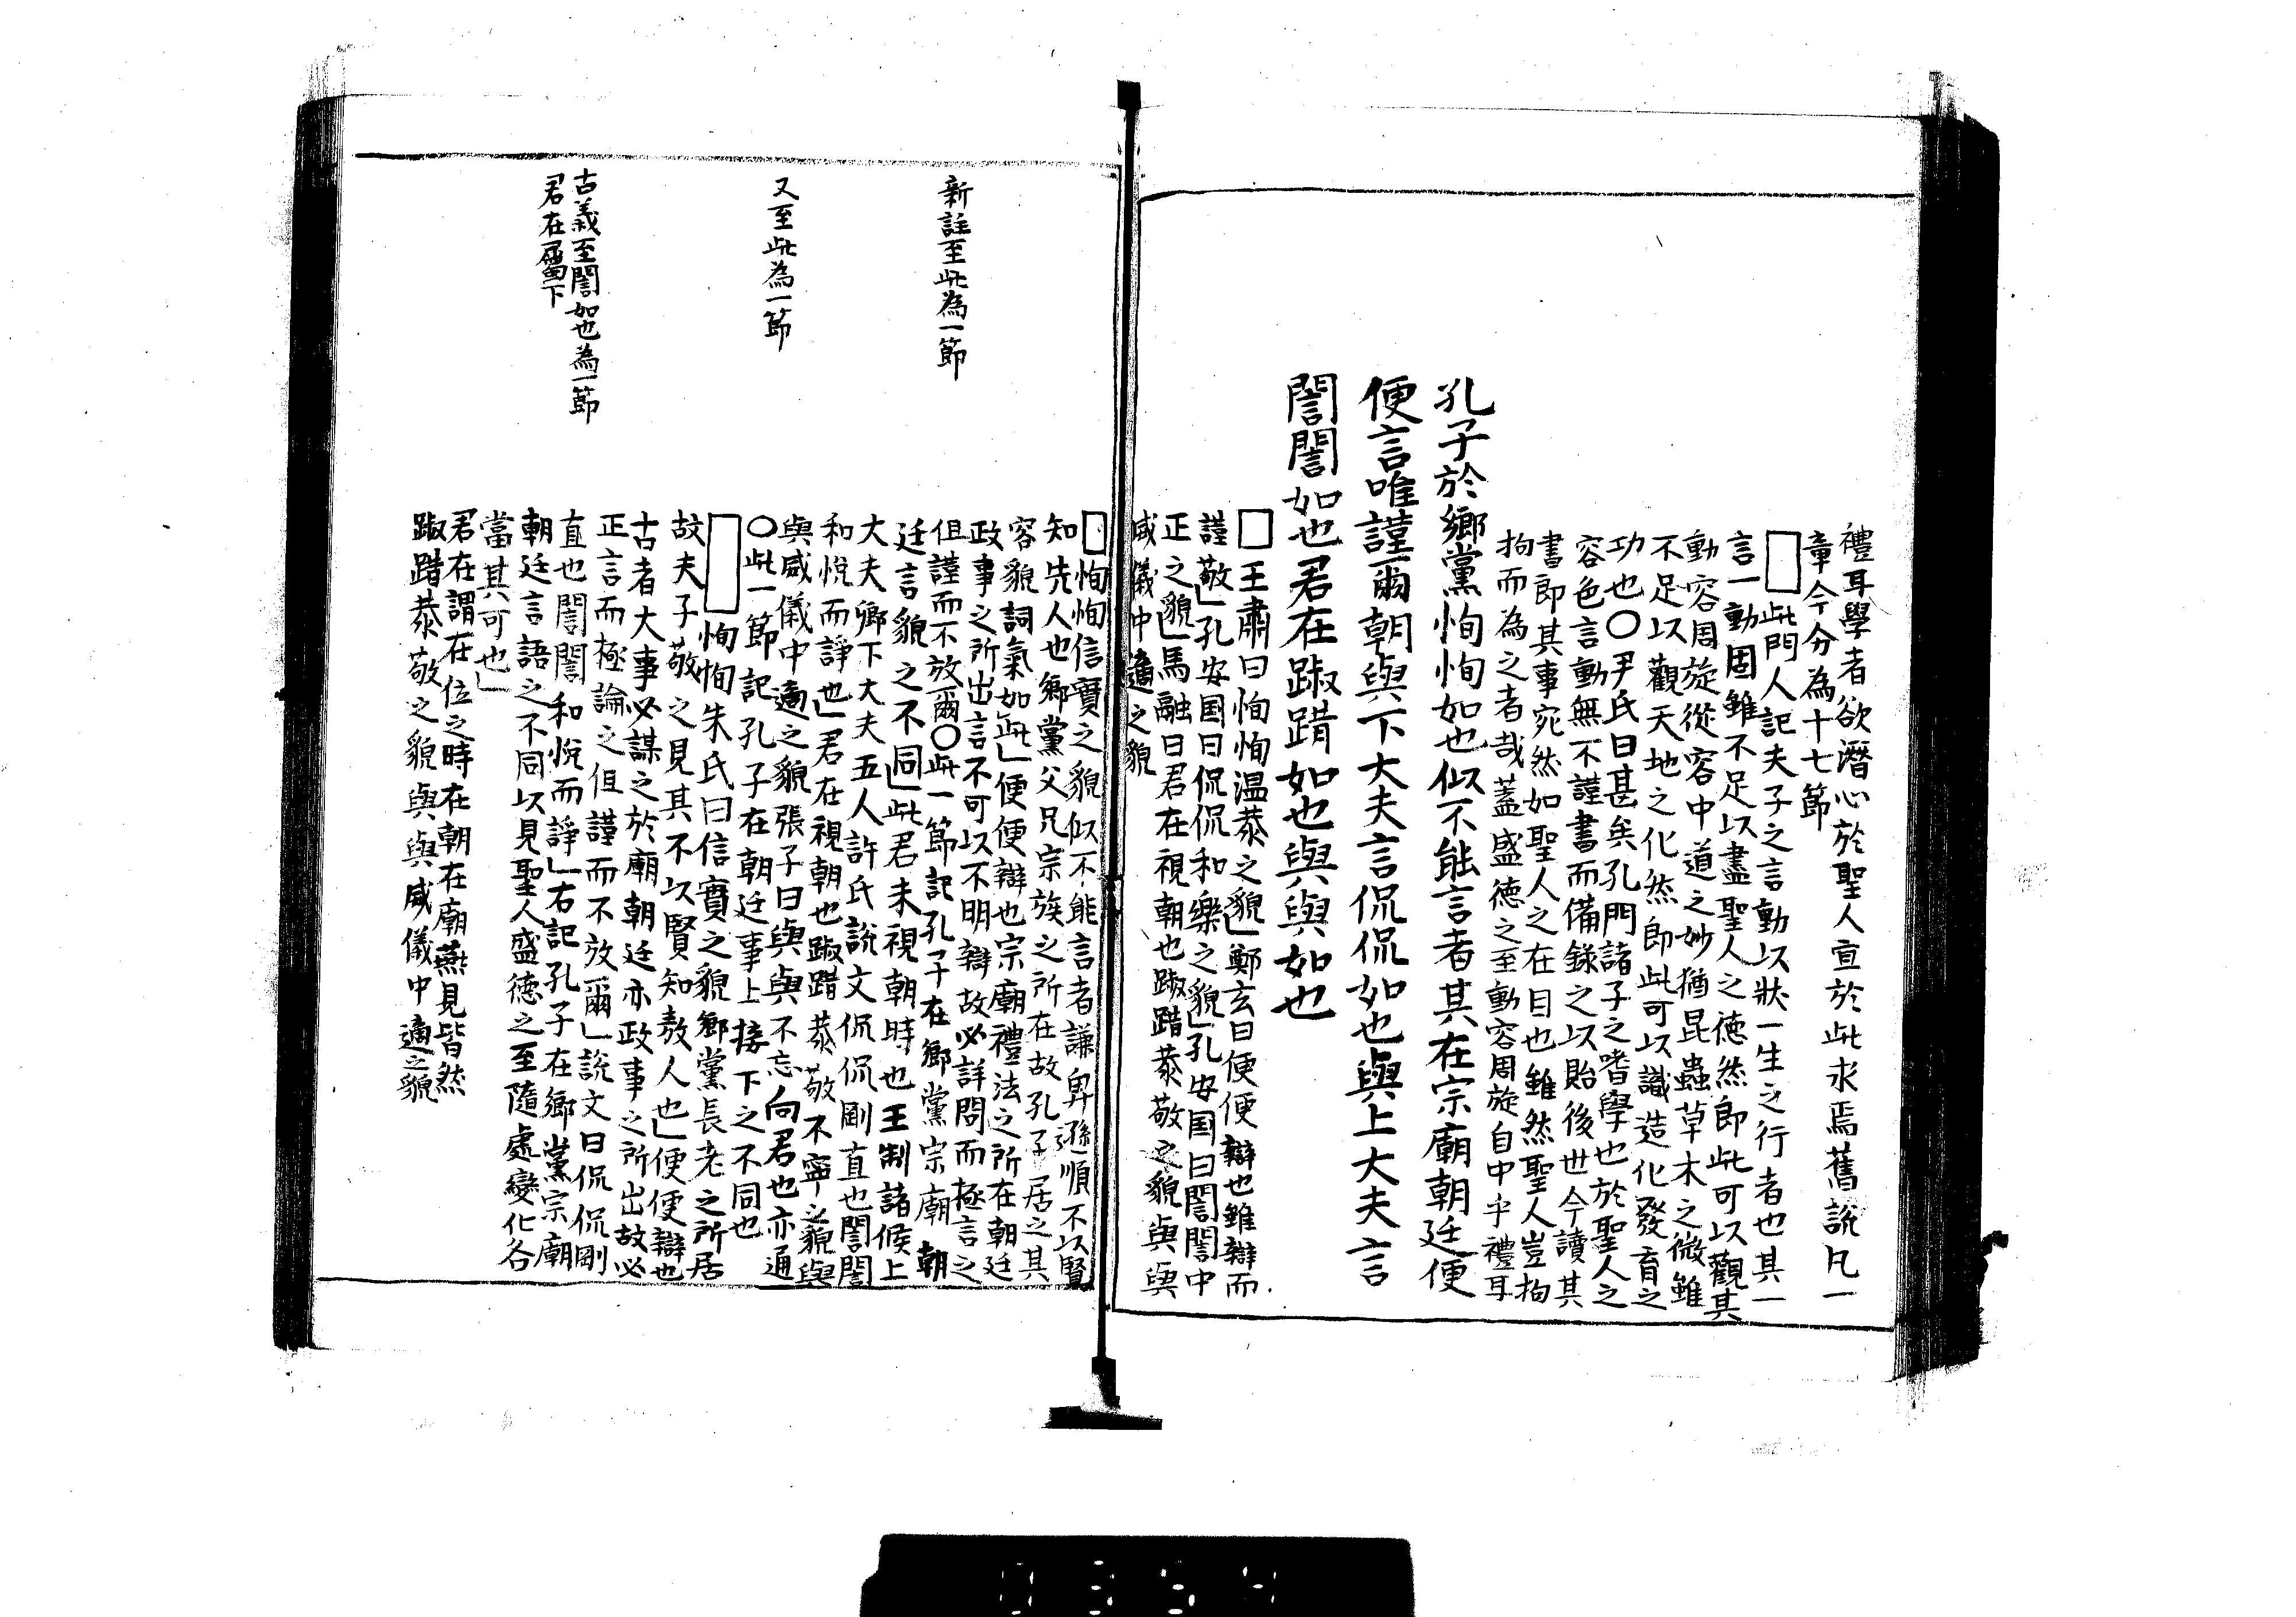 禮耳學者欲潛心於聖人宜於此求焉舊說凡一
章今分為十七節
此門人記夫子之言動以狀一生之行者也其一
言一動固雖不足以盡聖人之德然即此可以觀其
動容周旋從容中道之妙猶昆蟲草木之微雖
不足以觀天地之化然即此可以識造化發育之
功也〇尹氏曰甚矣孔門諸子之嗜學也於聖人之
容色言動無不謹書而備錄之以貽後世今讀其
書即其事宛然如聖人之在目也雖然聖人豈拘
拘而為之者哉蓋盛德之至動容周旋自中乎禮耳
孔子於鄉黨恂恂如也似不能言者其在宗廟朝廷便
便言唯謹爾朝與下大夫言侃侃如也與上大夫言
誾誾如也君在踧踖如也與與如也
王肅曰恂恂溫恭之貌」鄭玄曰便便辯也雖辯而
謹敬」孔安国曰侃侃和樂之貌」孔安国曰誾誾中
正之貌」馬融曰君在視朝也踧踖恭敬之貌與與
威儀中適之貌
新註至此為一節
又至此為一節
古義至誾如也為一節
君在屬下
恂恂信實之貌似不能言者謙卑遜順不以賢
知先人也鄉黨父兄宗族之所在故孔子居之其
容貌詞氣如此」便便辯也宗廟禮法之所在朝廷
政事之所出言不可以不明辯故必詳問而極言之
但謹而不放爾〇此一節記孔子在鄉黨宗廟朝
廷言貌之不同」此君未視朝時也王制諸侯上
大夫卿下大夫五人許氏說文侃侃剛直也誾誾
和悅而諍也」君在視朝也踧踖恭敬不寧之貌與
與威儀中適之貌張子曰與與不忘向君也亦通
〇此一節記孔子在朝廷事上接下之不同也
恂恂朱氏曰信實之貌鄉黨長老之所居
故夫子敬之見其不以賢知敖人也」便便辯也
古者大事必謀之於廟朝廷亦政事之所出故必
正言而極論之但謹而不放爾」說文曰侃侃剛
直也誾誾和悅而諍」右記孔子在鄉黨宗廟
朝廷言語之不同以見聖人盛德之至隨處變化各
當其可也」
君在謂在位之時在朝在廟燕見皆然
踧踖恭敬之貌與與威儀中適之貌